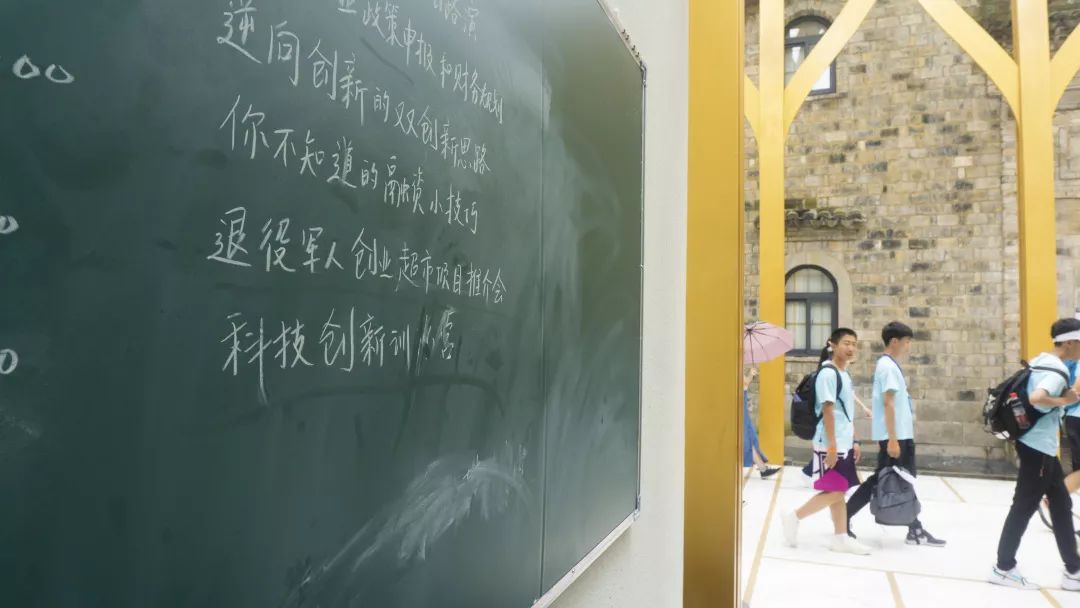 路演
业政策申报和财务规划
逆向创新的双创新思路
你不知道的融资小技巧
退役军人创业超市项目推介会
科技创新训小营
00
0
0